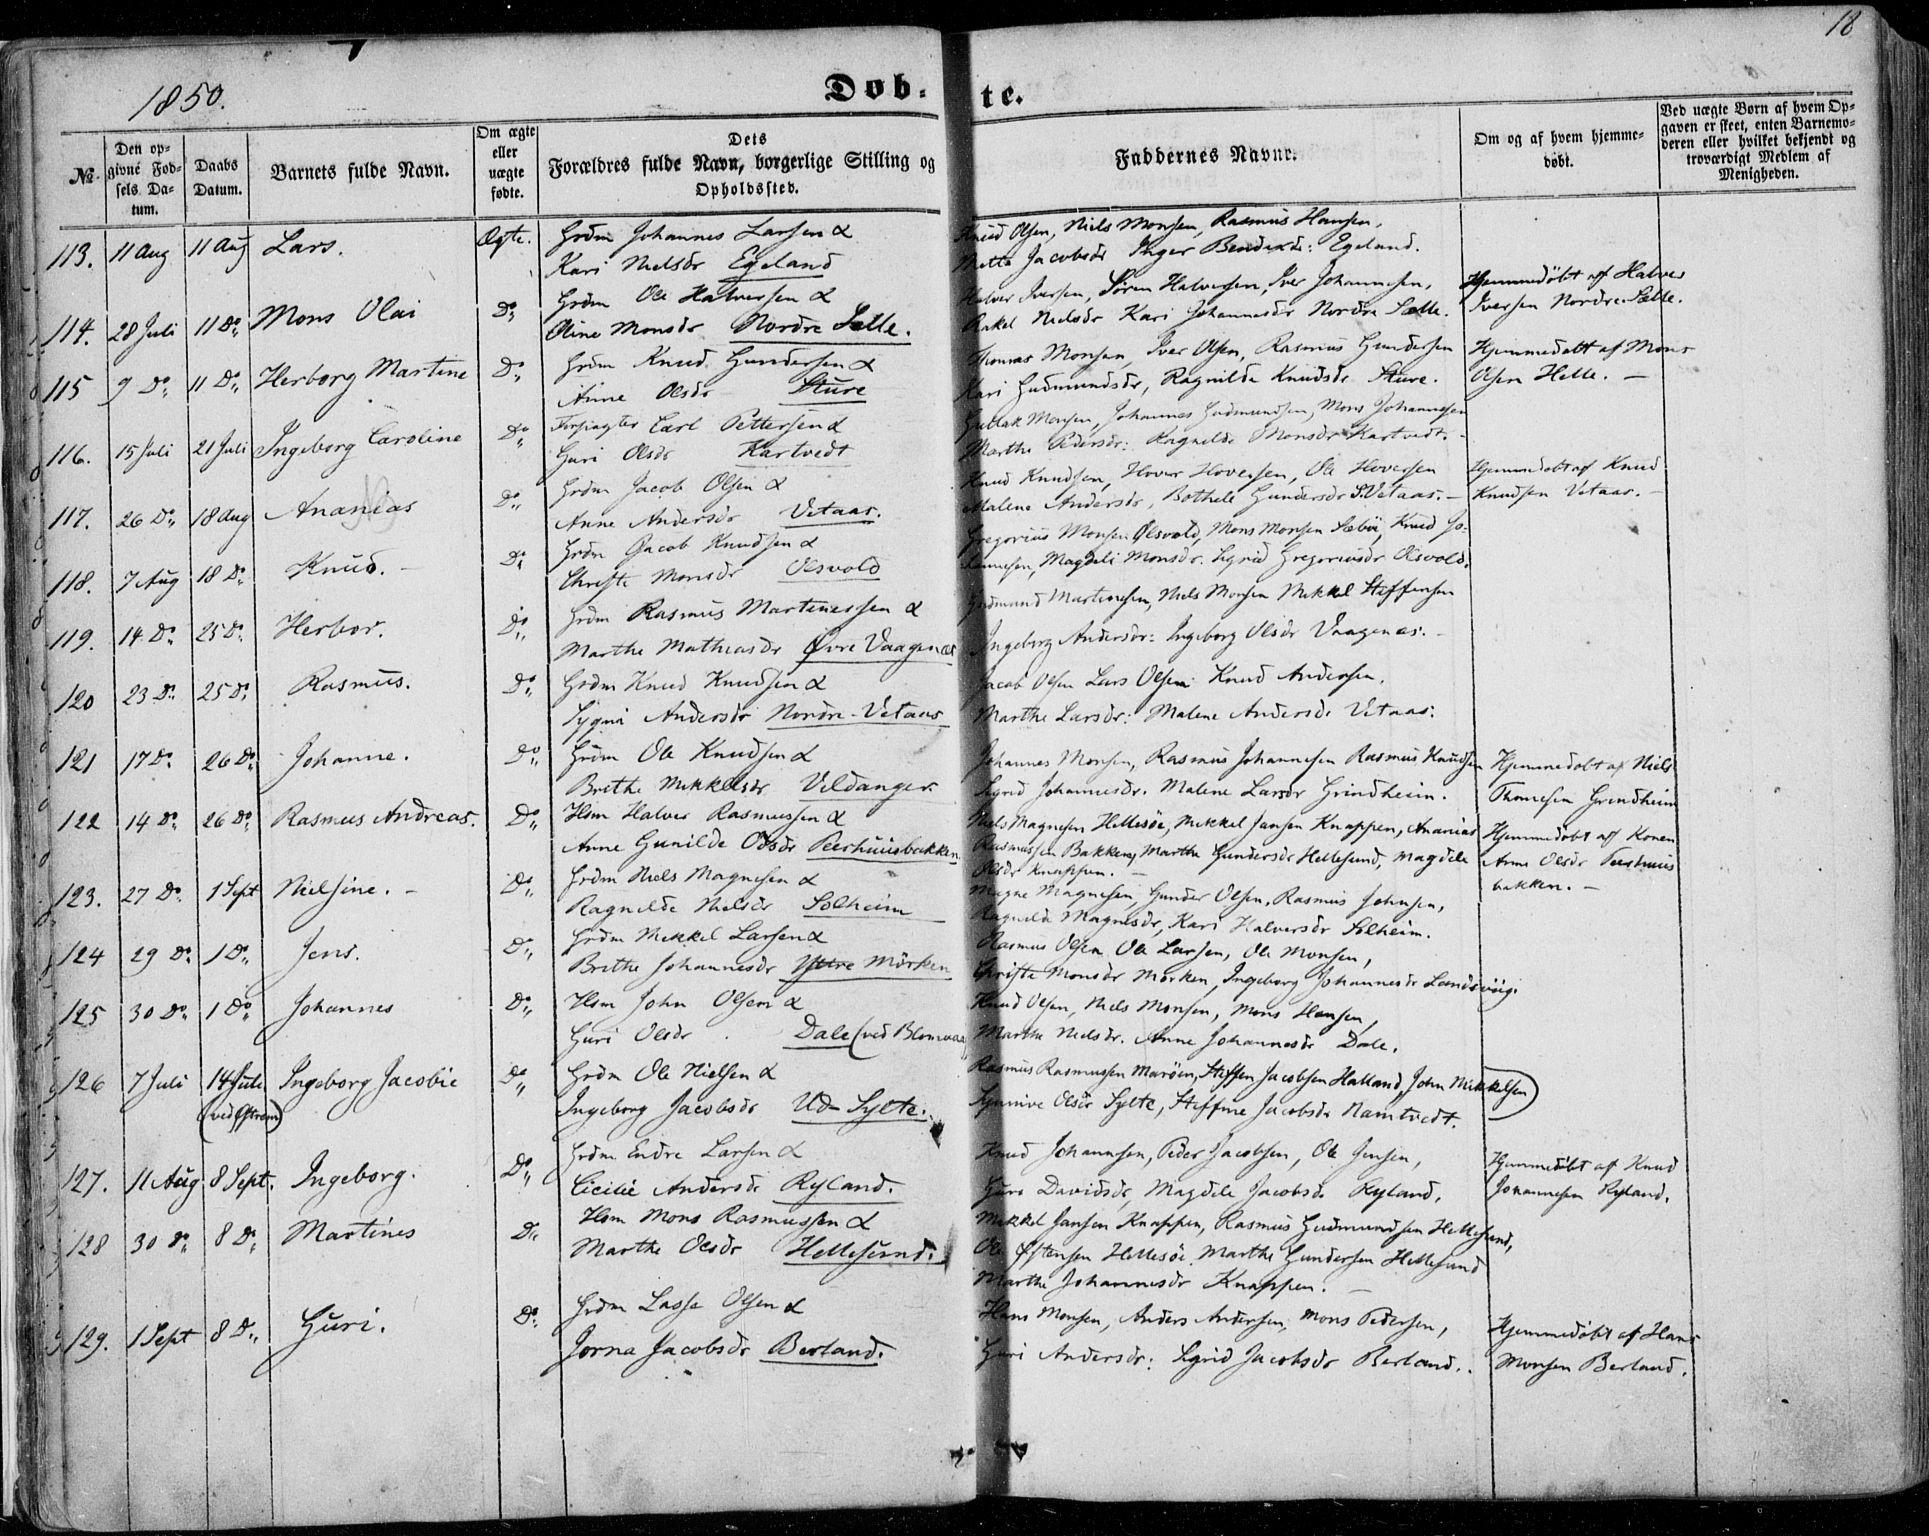 18
1850.
Døb-
te.
No.
Den op-
givne Fød-
sels Da-
tum.
Daabs
Datum.
Barnets fulde Navn.
Om ægte
eller
uægte
fødte.
Dets
Forældres fulde Navn, borgerlige Stilling og
Opholdssted.
Faddernes Navne.
Om og af hvem hjemme-
døbt.
Ved uægte Børn af hvem Op-
gaven er skeet, enten Barnemo-
deren eller hvilket bekjendt og
troværdigt Medlem af
Menigheden.
113. 11 Aug 11 Aug Lars. Ægte. Grdm Johannes Larsen &
Kari Nielsdr Egeland
Knud Olsen, Niels Monsen, Rasmus Hansen,
Mette Jacobsdr Inger Bendixdr: Egeland.
114. 28 Juli 11 Do Mons Olai Do Grdm Ole Halversen &
Oline Monsdr Nordre Sælle.
Halver Iversen, Søren Halversen, Iver Johannesen,
Rakel Nielsdr Kari Johannesdr Nordre Sælle.
Hjemmedøbt af Halver
Iversen Nordre Sælle.
115 9 Do 11 Do Herborg Martine Do Grdm Knud Gundersen &
Anne Olsdr Sture
Thomas Monsen, Iver Olsen, Rasmus Gundersen
Kari Gudmundsdr, Ragnilde Knudsdr Sture.
Hjemmedøbt af Mons
Olsen Helle. —
116. 15 Juli 21 Juli Ingeborg Caroline Do Forpagter Carl Pettersen &
Guri Olsdr Kartvedt
Gullak Monsen, Johannes Gudmundsen, Mons Johannesen
Marthe Pedersdr: Ragnilde Monsdr Kartvedt.
117. 26 Do 18 Aug Ananias Do Grdm Jacob Olsen &
Anne Andersdr Vetaas.
Knud Knudsen, Hover Hoversen, Ole Hoversen
Malene Andersdr, Bothele Gundersdr S. Vetaas. —
Hjemmedøbt af Knud
Knudsen Vetaas. —
118. 7 Aug 18 Do Knud. — Do Grdm Jacob Knudsen &
Christi Monsdr Oesvold
Gregorius Monsen Oesvold, Mons Monsen Sæbø, Knud Jo-
hannesen, Magdeli Monsdr. Sigrid Gregoriusdr Oesvold.
119. 14 Do 25 Do Herbor. Do Grdm Rasmus Martinessen &
Marthe Mathiasdr Øvre Vaagenæs
Gudmund Martinesen, Niels Monsen Mikkel Steffensen
Ingeborg Andersdr: Ingeborg Olsdr Vaagenæs. —
120 23 Do 25 Do Rasmus. Do Grdm Knud Knudsen &
Andersdr Nordre Vetaas
Jacob Olsen Lars Olsen Knud Andersen,
Marthe Larsdr: Malene Andersdr Vetaas.
121 17 Do 26 Do Johanne. Do Grdm Ole Knudsen &
Brithe Mikkelsdr Vildanger
Johannes Monsen, Rasmus Johannesen Rasmus Knudsen
Sigrid Johannesdr. Malene Larsdr Grindheim.
Hjemmedøbt af Niels
Thomesen Grindheim
122 14 Do 26 Do Rasmus Andreas. Do Hsm Halver Rasmussen &
Anne Gunilde Olsdr Peerhuusbakken
Niels Magnesen Hellesøe, Mikkel Jansen Knappen, Ananias
Rasmussen Bakken, Marthe Gundersdr Hellesund, Magdele
Olsdr Knappen. —
Hjemmedøbt af Konen
Anne Olsdr Peerhuus
bakken. —
123. 27 Do 1 Sept Nielsine. — Do Grdm Niels Magnesen &
Ragnilde Nielsdr Solheim
Magne Magnesen, Gunder Olsen, Rasmus Johnsen,
Ragnilde Magnesdr, Kari Halversdr Solheim.
124 29 Do 1 Do Jens. Do Grdm Mikkel Larsen &
Brithe Johannesdr Yttre Mörken
Rasmus Olsen Ole Larsen, Ole Monsen,
Christe Monsdr Mörken, Ingeborg Johannesdr Landsvig.
125 30 Do 1 Do Johannes Do Hsm John Olsen &
Guri Olsdr Dale (ved Blomvaag
Knud Olsen, Niels Monsen, Mons Hansen,
Marthe Nielsdr. Anne Johannesdr Dale.
126 7 Juli 14 Juli Ingeborg Jacobie Do Grdm Ole Nielsen &
Ingeborg Jacobsdr Ud-Sylte.
Rasmus Rasmussen Marøen, Steffen Jacobsen Halland, John Mikkelsen
Synnive Olsdr Sylte, Steffine Jacobsdr Namtvedt.
127. 11 Aug 8 Sept. Ingeborg. Do Grdm Endre Larsen &
Cicilie Andersdr Ryland.
Knud Johannesen, Peder Jacobsen, Ole Jensen,
Guro Davidsdr, Magdele Jacobsdr Ryland.
Hjemmedøbt af Knud
Johannesen Ryland.
128 30 Do 8 Do Martines Do Hsm Mons Rasmussen &
Marthe Olsdr Hellesund.
Mikkel Jansen Knappen, Rasmus Gudmundsen Hellesund,
Ole Østensen Hellesøe. Marthe Gundersen Hellesund
Marthe Johannesdr Knappen. —
129. 1 Sept 8 Do Guri. Do Grdm Lasse Olsen &
Jorna Jacobsdr Berland.
Hans Monsen, Anders Andersen, Mons Pedersen,
Guri Andersdr: Sigrid Jacobsdr Berland.
Hjemmedøbt af Hans
Monsen Berland.